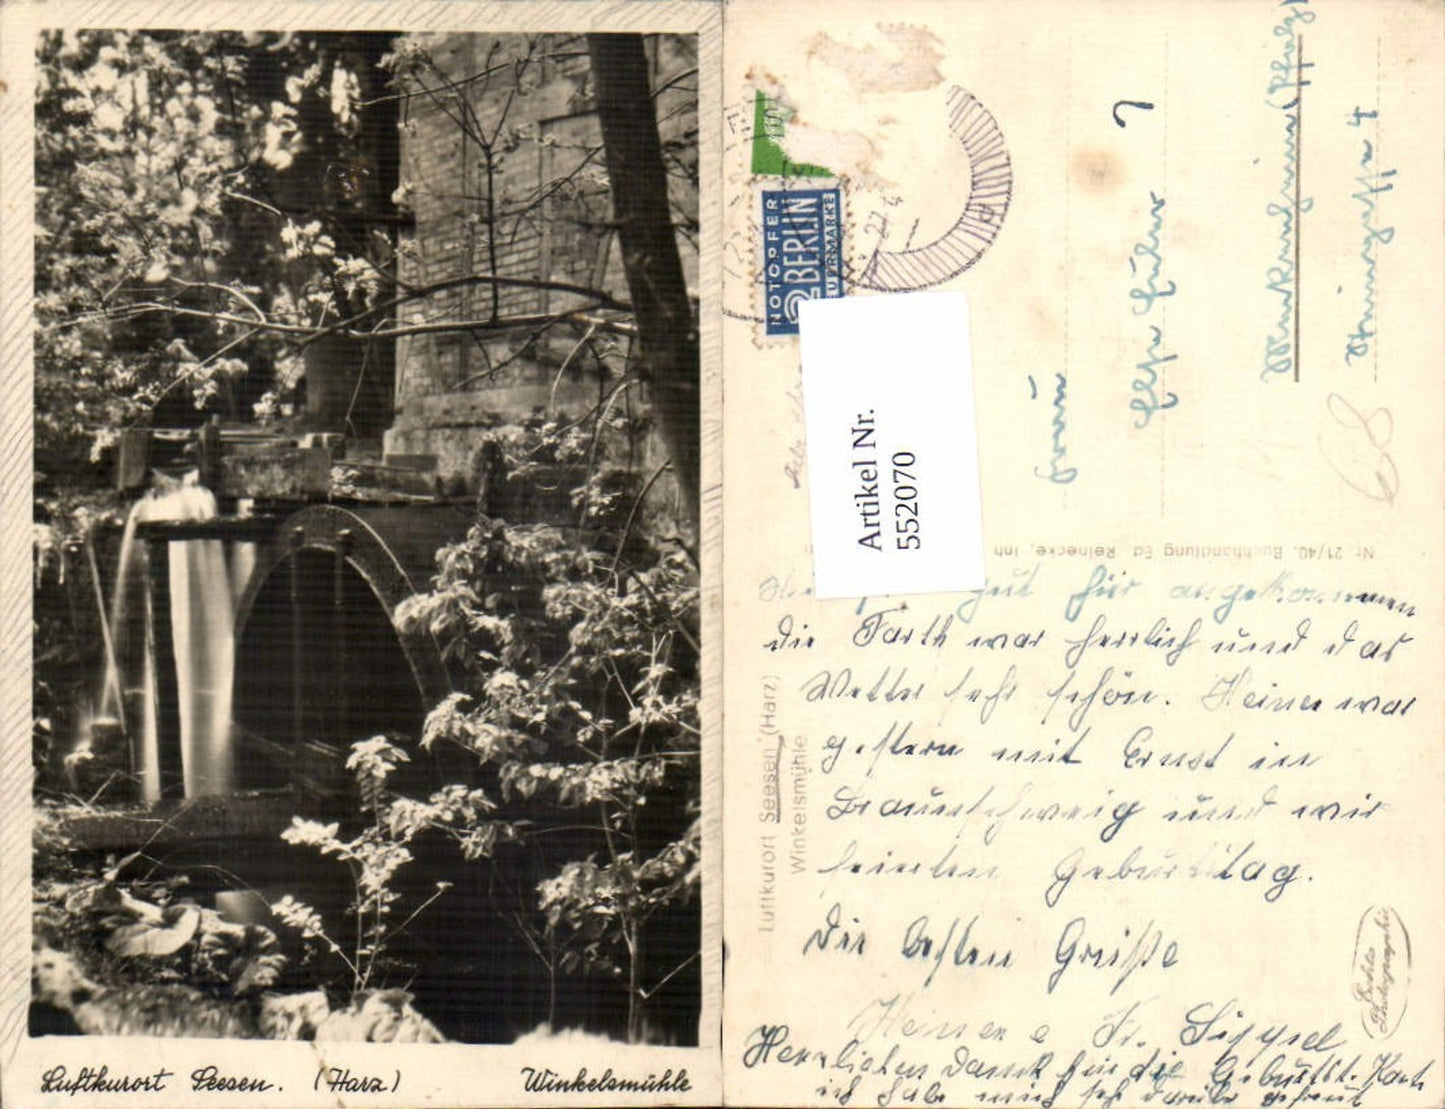 Luftkurort Seesen. (Harz)
Winkelsmühle
NOTOPFER
2 BERLIN
STEUERMARKE
Artikel Nr.
552070
Frau
Else
4
68
Nr. 21/40. Buchhandlung Ed. Reinecke, Inh
Luftkurort Seesen (Harz)
Winkelsmühle
gut hier angekommen
die Farth war herrlich und das
Wetter sehr schön. Heiner war
gestern mit Ernst in
Braunschweig und wir
feierten Geburtstag.
Die besten Grüße
Fr. Sippel
Herzlichen Dank für die Geburtst. Kart
ich habe mich sehr darüber gefreut
Echte Photographie